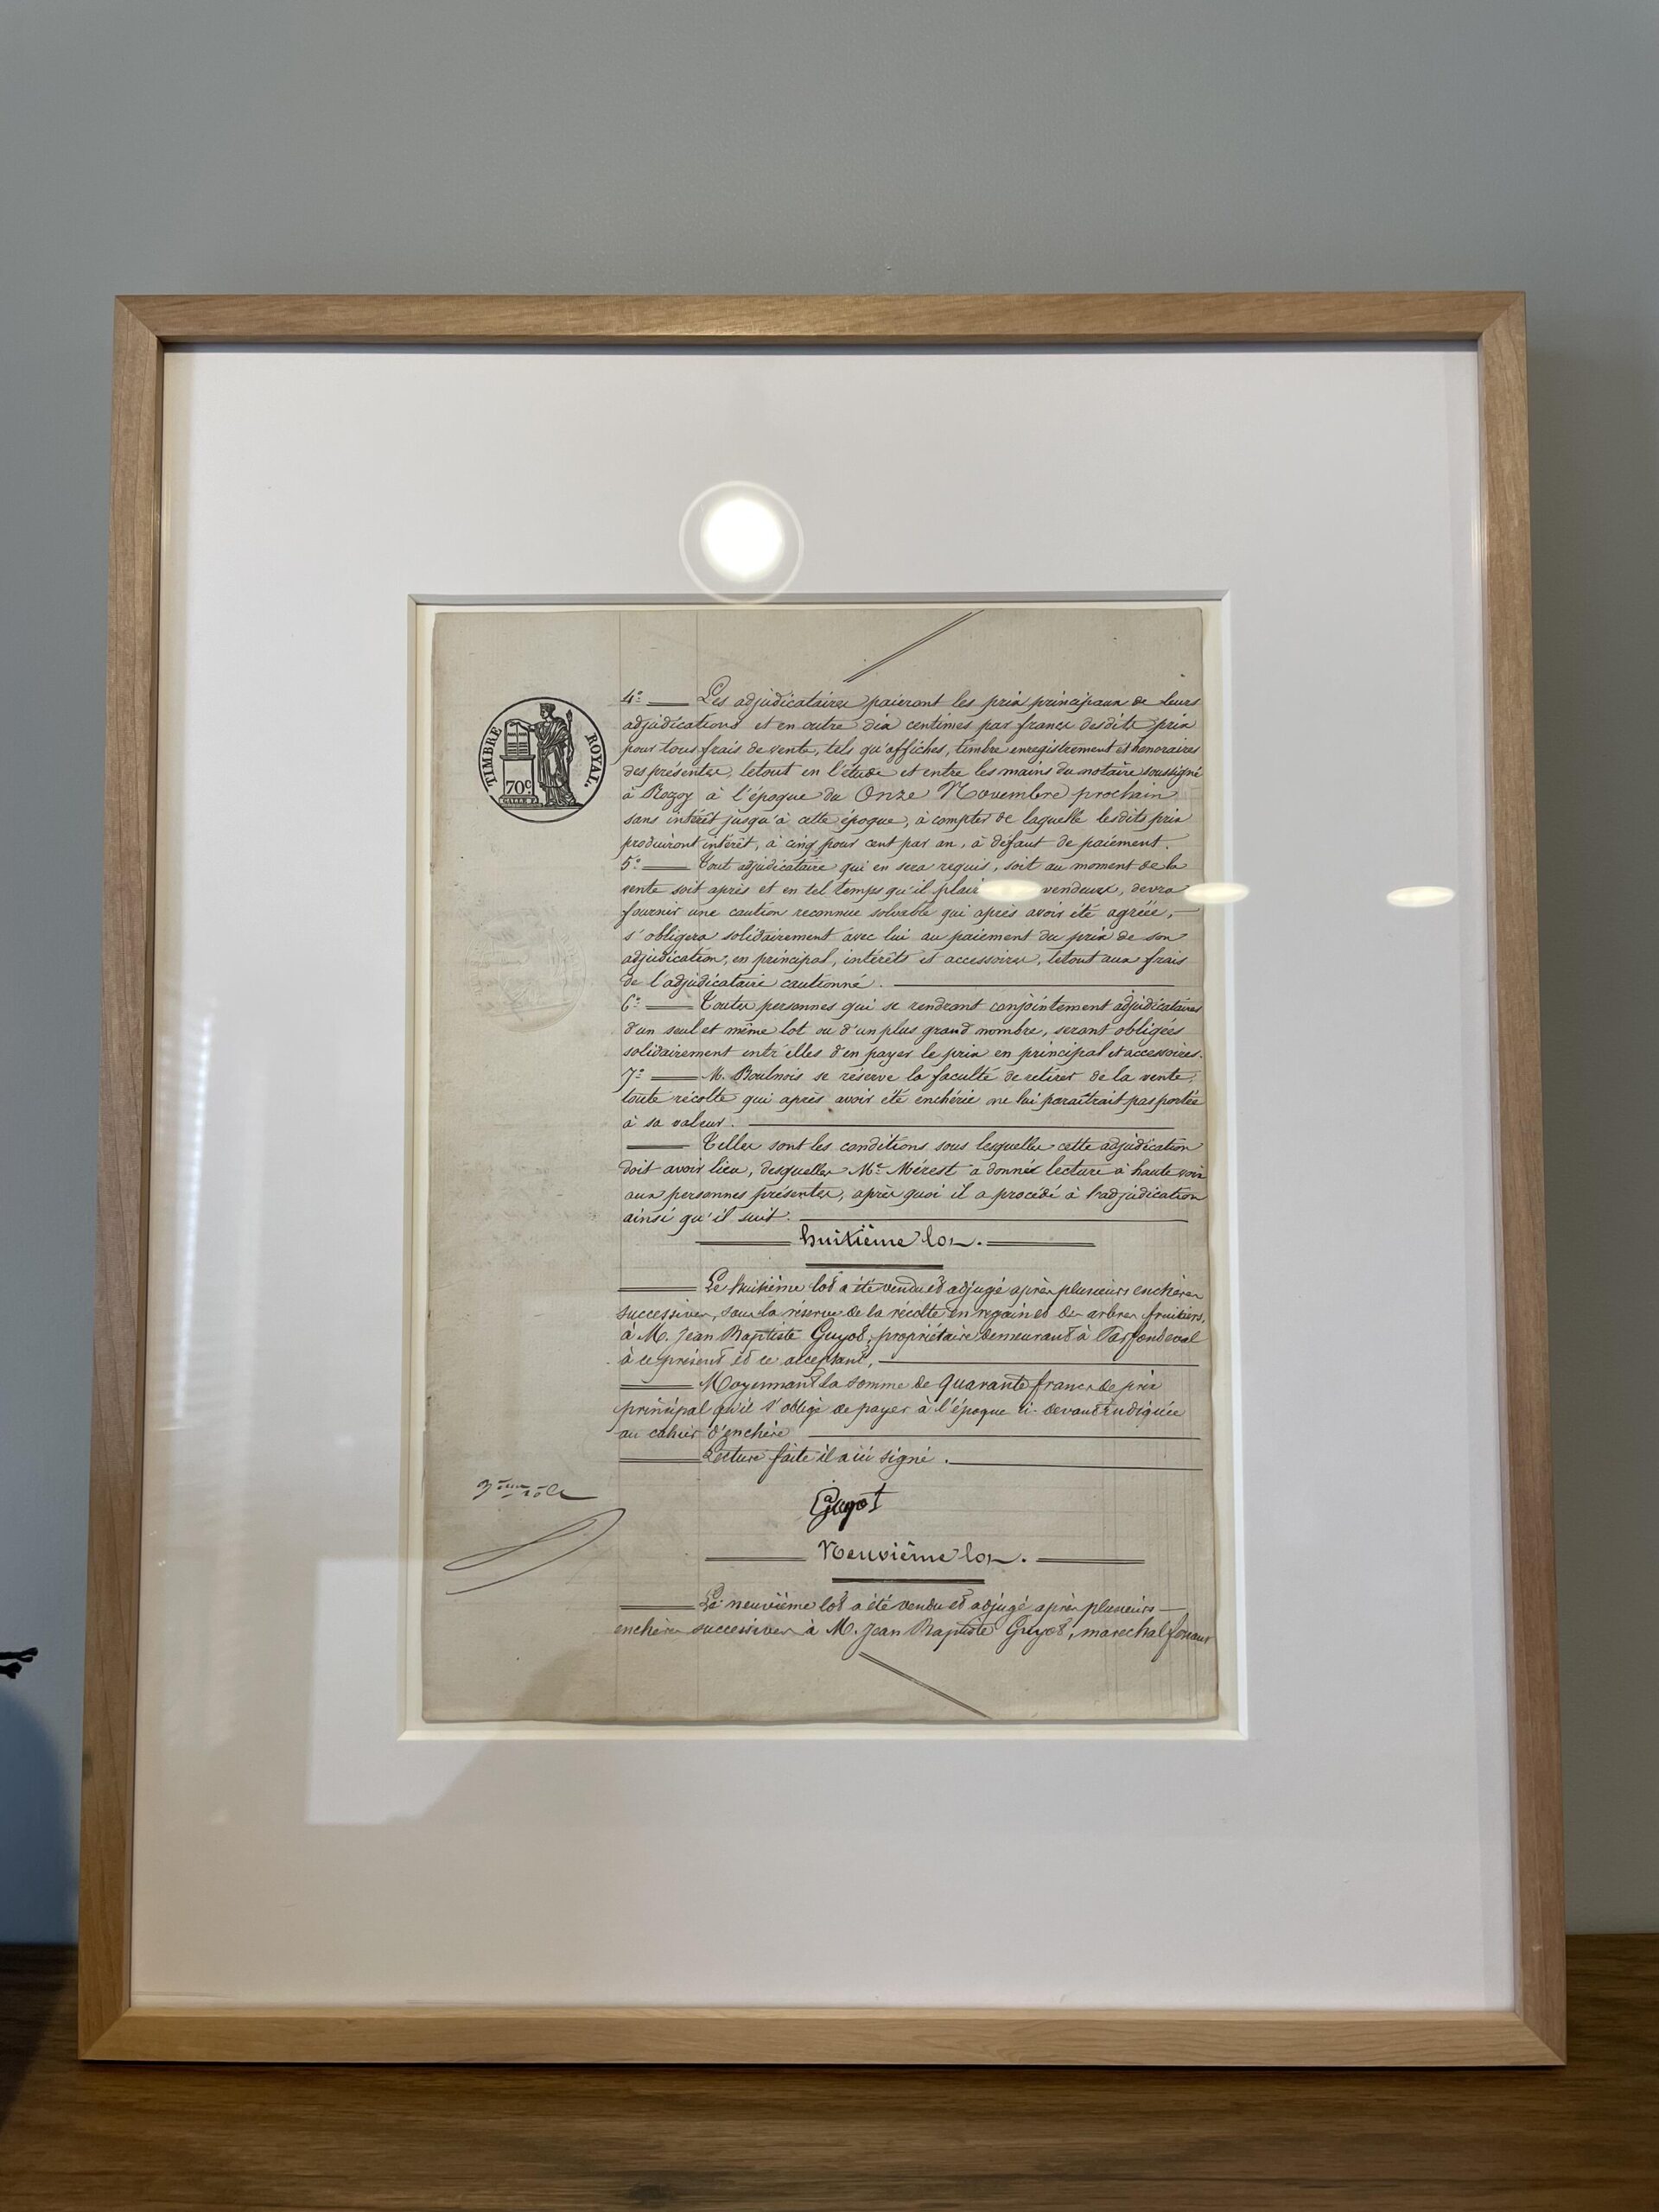 TIMBRE ROYAL.
70c.
4° Les adjudicataires paieront les prix principaux de leurs
adjudications et en outre dix centimes par franc desdits prix
pour tous frais de vente, tels qu'affiches, timbre enregistrement et honoraires
des présentes, letout en l'étude et entre les mains du notaire soussigné
à Rozoy à l'époque du Onze Novembre prochain
sans intérêt jusqu'à cette époque, à compter de laquelle lesdits prix
produiront intérêt, à cinq pour cent par an, à défaut de paiement.
5° Tout adjudicataire qui en sera requis, soit au moment de la
vente soit après et en tel temps qu'il vendeurs, devra
fournir une caution reconnue solvable qui après avoir été agréée,
s'obligera solidairement avec lui au paiement du prix de son
adjudication, en principal, intérêts et accessoires, letout aux frais
de l'adjudicataire cautionné.
6° Toutes personnes qui se rendront conjointement adjudicataires
d'un seul et même lot ou d'un plus grand nombre, seront obligées
solidairement entr'elles d'en payer le prix en principal et accessoires.
7° M. Boulnois se réserve la faculté de retirer de la vente,
toute récolte qui après avoir été enchérie ne lui paraîtrait pas portée
à sa valeur.
Telles sont les conditions sous lesquelles cette adjudication
doit avoir lieu, desquelles Me. Mérest a donné lecture à haute voix
aux personnes présentes, après quoi il a procédé à l'adjudication
ainsi qu'il suit.
huitième lot.
Le huitième lot a été vendu et adjugé après plusieurs enchères
successives, sous la réserve de la récolte en regain et des arbres fruitiers,
à M. Jean Baptiste Guyot, propriétaire demeurant à Parfondeval
à ce présent et ce acceptant,
Moyennant la somme de quarante francs de prix
principal qu'il s'oblige de payer à l'époque ci-devant indiquée
au cahier d'enchère
Lecture faite il a ici signé.
Guyot
3ème rôle
Neuvième lot.
Le neuvième lot a été vendu et adjugé après plusieurs
enchères successives à M. Jean Baptiste Guyot, marechal ferrant